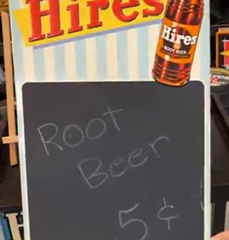 Hires
Hires
ROOT BEER
Root
Beer
5¢